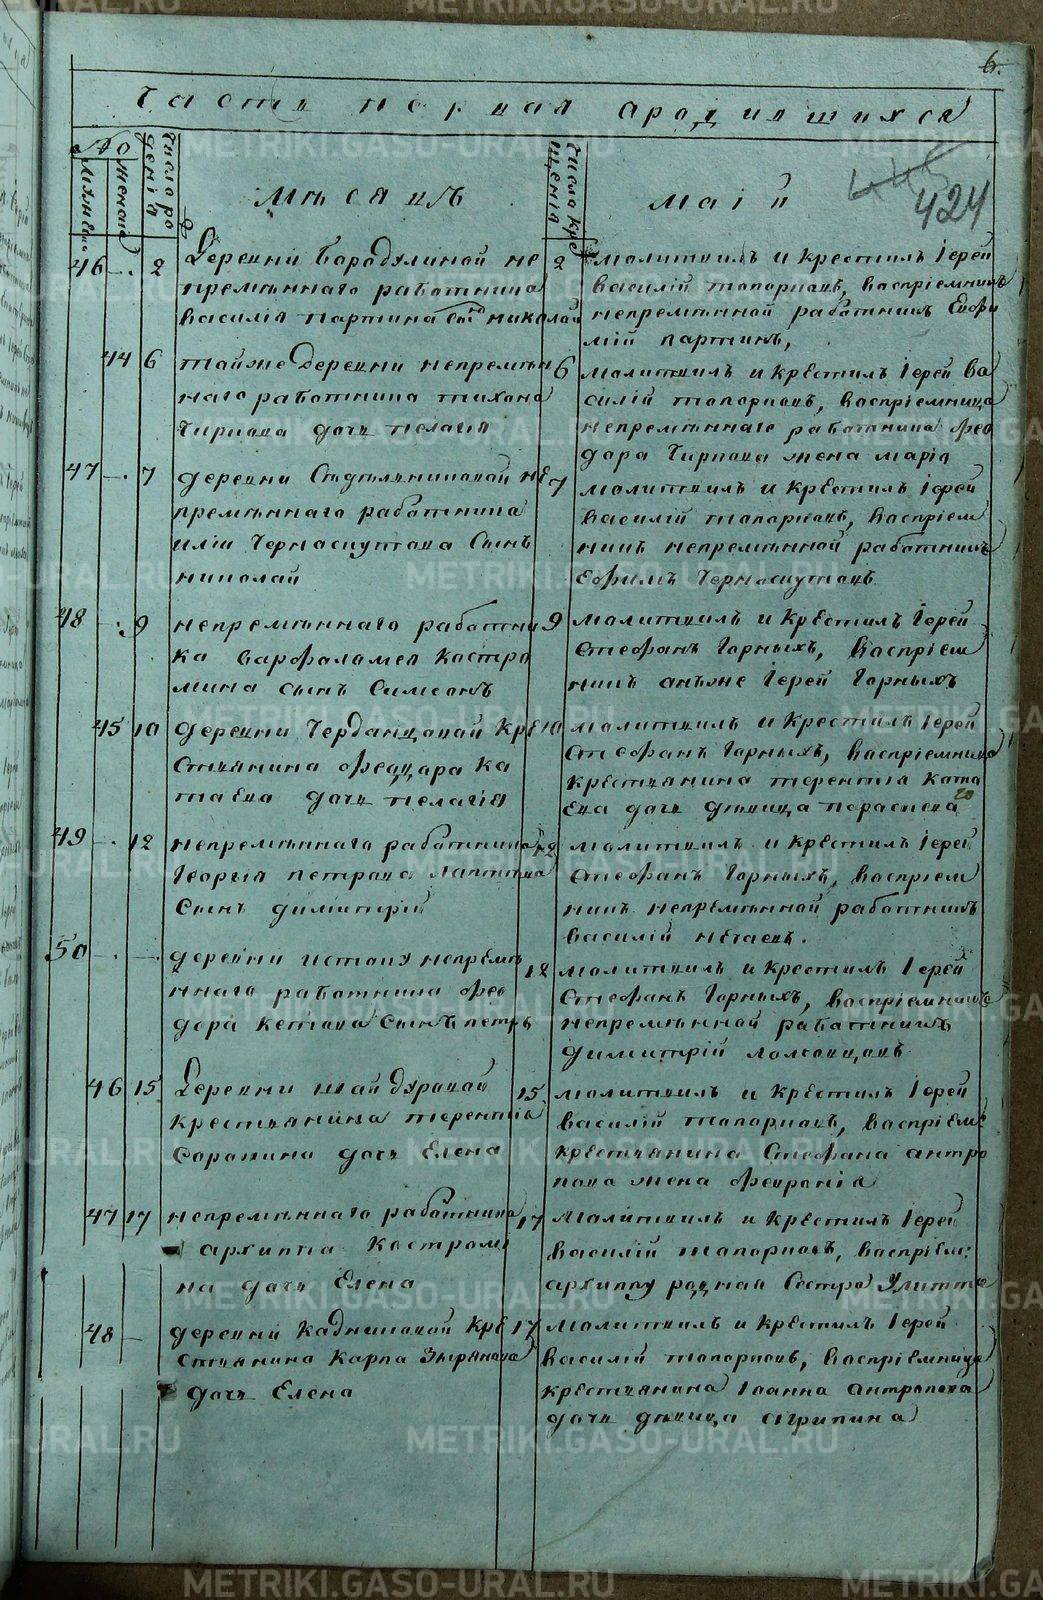 6.
часть первая ородившихся
424
№
мужеска
женска
число рождения
месяцъ
число крещения
маiй
46 2 Деревни Бородулиной не
пременнаго работника
василiя партина сынъ николай
2 молитвилъ и крестилъ Iерей
василiй топорковъ, воспрiемникъ
непременной работникъ Евфи
мiй партинъ,
44 6 тойже деревни непремен
наго работника тихона
Чиркова дочь пелагiя
6 молитвилъ и крестилъ Iерей Ва
силiй топорковъ, воспрiемница
непременнаго работника фео
дора Чиркова жена марiя
47 7 деревни Седельниковой не
пременнаго работника
илiи Черноскутова Сынъ
николай
7 молитвилъ и крестилъ Iерей
василiй топорковъ, воспрiем
никъ непременной работникъ
Ефимъ Черноскутовъ
48 9 непременнаго работни
ка варфоломея костро
мина сынъ Симеонъ
9 молитвилъ и крестилъ Iерей
стефанъ Горныхъ, воспрiем
никъ онъже Iерей Горныхъ
45 10 деревни Черданцовой кре
стьянина феодора ка
таева дочь пелагiя
10 молитвилъ и крестилъ Iерей
стефанъ Горныхъ, воспрiемница
крестьянина терентiя ката
ева дочь девица параскева
49 12 непременнаго работника
Георгiя петрова лаптева
Сынъ димитрiй
12 молитвилъ и крестилъ Iерей
стефанъ Горныхъ, воспрiем
никъ непременной работникъ
василiй нечаевъ.
50 — деревни истоку непреме
ннаго работника фео
дора кетова Сынъ петръ
12 молитвилъ и крестилъ Iерей
стефанъ Горныхъ, воспрiемникъ
непременной работникъ
димитрiй ломовцовъ
46 15 Деревни шайдуровой
крестьянина терентiя
Сорокина дочь Елена
15 молитвилъ и крестилъ Iерей
василiй топорковъ, воспрiем:
крестьянина Стефана антро
пова жена феврониiя
47 17 непременнаго работника
архиппа костроми
на дочь Елена
17 молитвилъ и крестилъ Iерей
василiй топорковъ, воспрiем:
архиппу родная Сестра Улитта
48 — деревни кадниковой кре
стьянина карпа Зырянова
дочь Елена
17 молитвилъ и крестилъ Iерей
василiй топорковъ, воспрiемница
крестьянина Iоанна антропова
дочь девица агрипина
METRIKI.GASO-URAL.RU